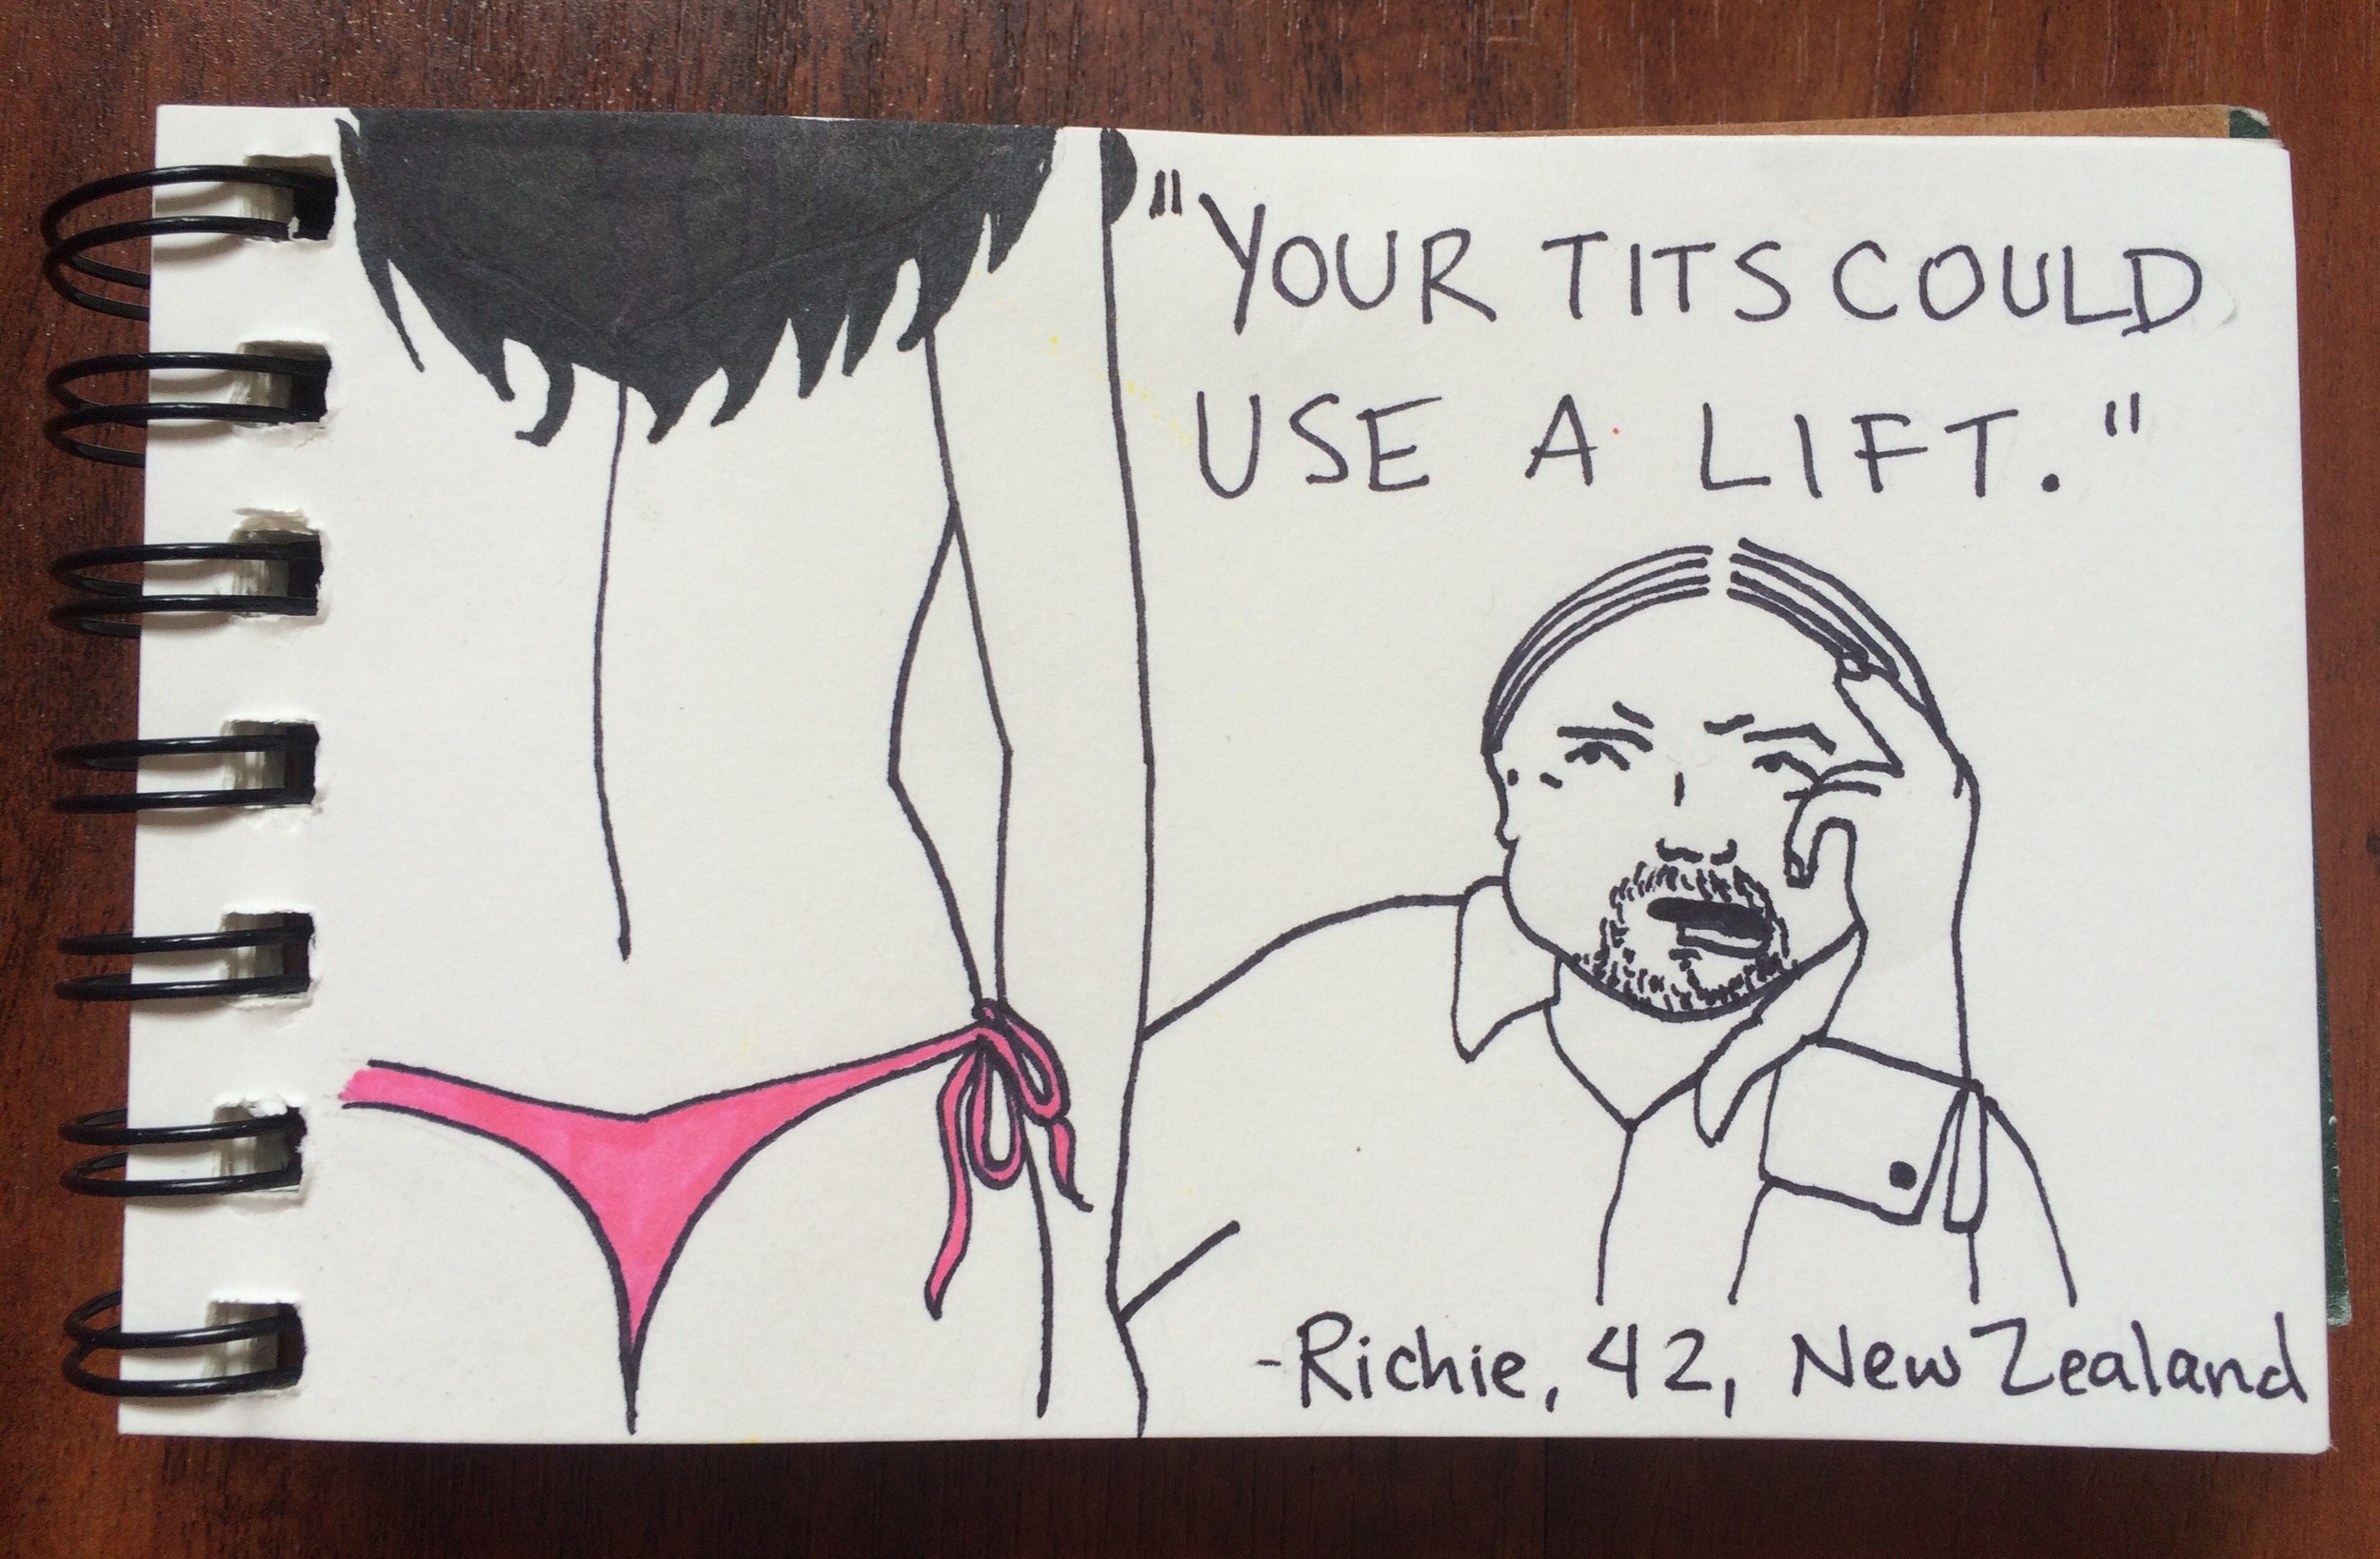 "YOUR TITS COULD
USE A LIFT."
-Richie, 42, New Zealand